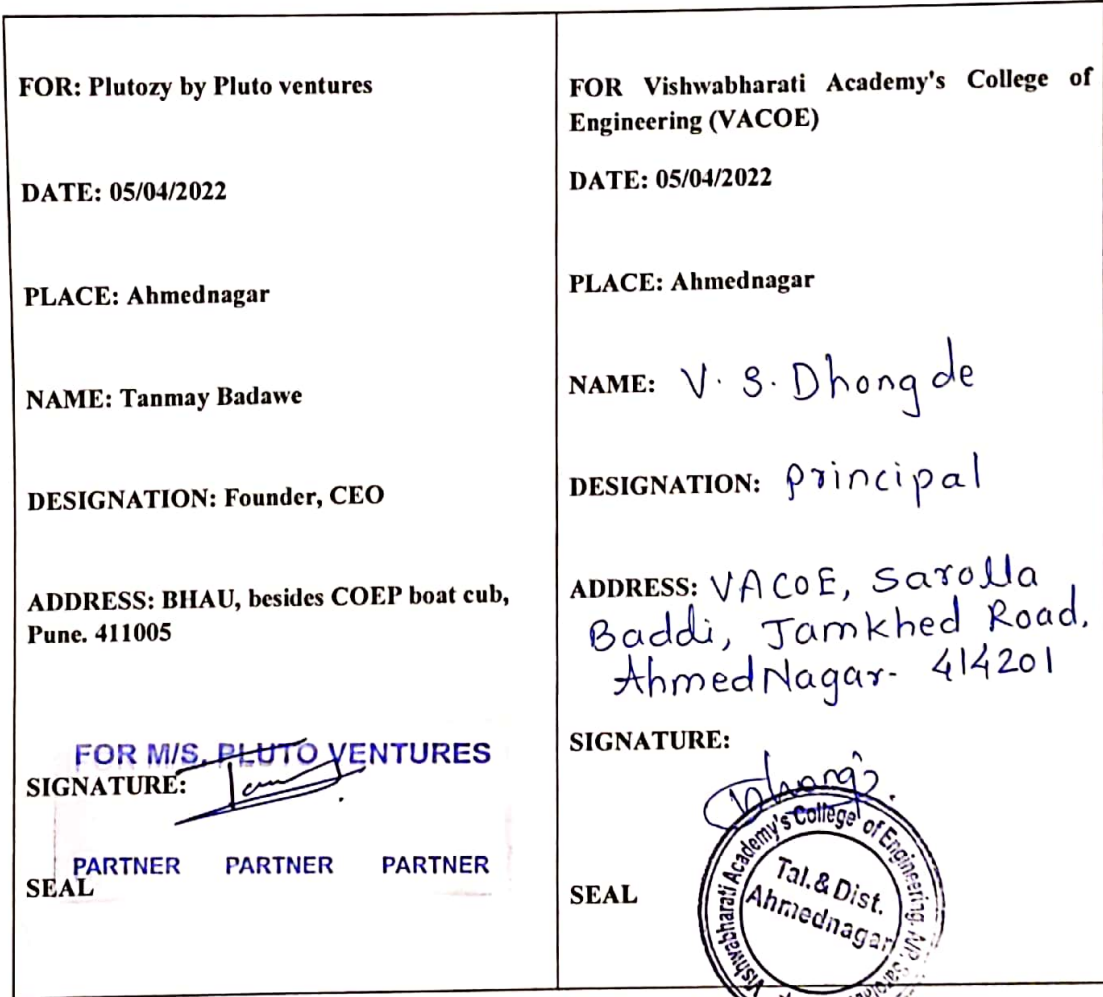 FOR: Plutozy by Pluto ventures
DATE: 05/04/2022
PLACE: Ahmednagar
NAME: Tanmay Badawe
DESIGNATION: Founder, CEO
ADDRESS: BHAU, besides COEP boat cub,
Pune. 411005
FOR M/S. PLUTO VENTURES
SIGNATURE:
PARTNER PARTNER PARTNER
SEAL
FOR Vishwabharati Academy's College of
Engineering (VACOE)
DATE: 05/04/2022
PLACE: Ahmednagar
NAME: V. S. Dhongde
DESIGNATION: principal
ADDRESS: VACOE, Sarolla
Baddi, Jamkhed Road,
AhmedNagar- 414201
SIGNATURE:
SEAL
Vishwabharati Academy's College of Engineering,
Tal. & Dist.
Ahmednagar